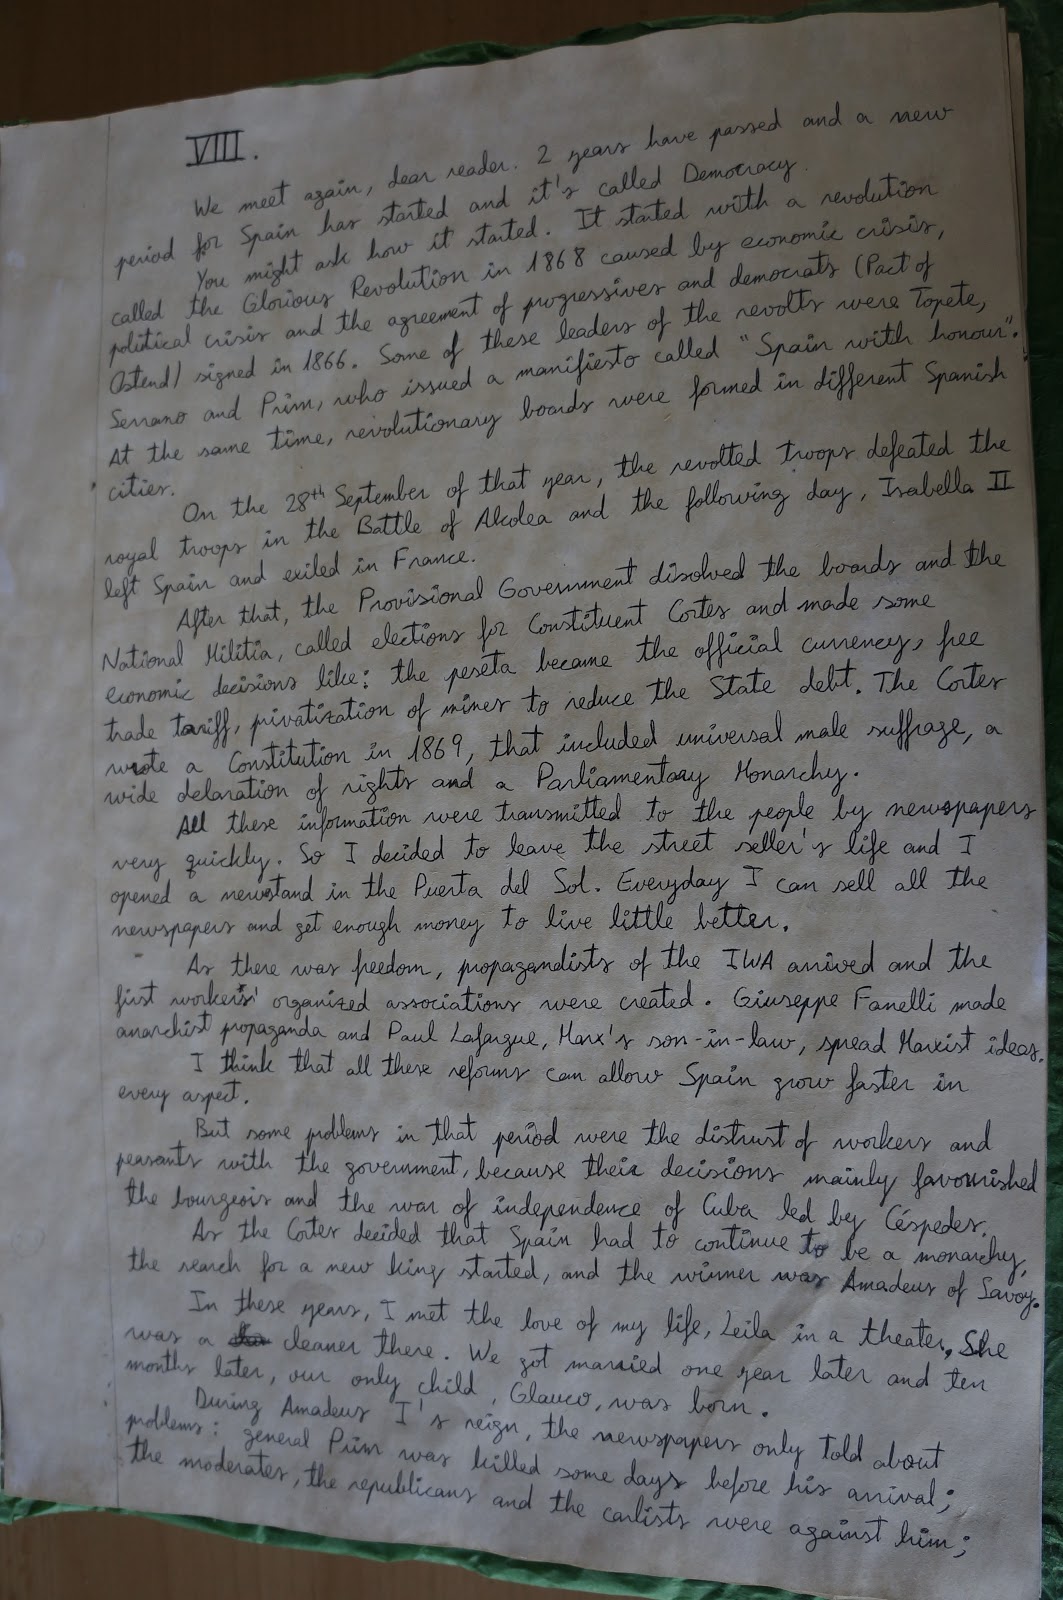 VIII.
We meet again, dear reader. 2 years have passed and a new
period for Spain has started and it's called Democracy.
You might ask how it started. It started with a revolution
called the Glorious Revolution in 1868 caused by economic crisis,
political crisis and the agreement of progressives and democrats (Pact of
Ostend) signed in 1866. Some of these leaders of the revolts were Topete,
Serrano and Prim, who issued a manifiesto called "Spain with honour".
At the same time, revolutionary boards were formed in different Spanish
cities.
On the 28th September of that year, the revolted troops defeated the
royal troops in the Battle of Alcolea and the following day, Isabella II
left Spain and exiled in France.
After that, the Provisional Government disolved the boards and the
National Militia, called elections for Constituent Cortes and made some
economic decisions like: the peseta became the official currency, free
trade tariff, privatization of mines to reduce the State debt. The Cortes
wrote a Constitution in 1869, that included universal male suffrage, a
wide delaration of rights and a Parliamentary Monarchy.
All these information were transmitted to the people by newspapers
very quickly. So I decided to leave the street seller's life and I
opened a newstand in the Puerta del Sol. Everyday I can sell all the
newspapers and get enough money to live little better.
As there was freedom, propagandists of the IWA arrived and the
first workers' organized associations were created. Giuseppe Fanelli made
anarchist propaganda and Paul Lafargue, Marx's son-in-law, spread Marxist ideas.
I think that all these reforms can allow Spain grow faster in
every aspect.
But some problems in that period were the distrust of workers and
peasants with the government, because their decisions mainly favourished
the bourgeois and the war of independence of Cuba led by Céspedes.
As the Cortes decided that Spain had to continue to be a monarchy,
the search for a new king started, and the winner was Amadeus of Savoy.
In these years, I met the love of my life, Leila in a theater. She
was a cleaner there. We got married one year later and ten
months later, our only child, Glauco, was born.
During Amadeus I's reign, the newspapers only told about
problems: general Prim was killed some days before his arrival;
the moderates, the republicans and the carlists were against him;